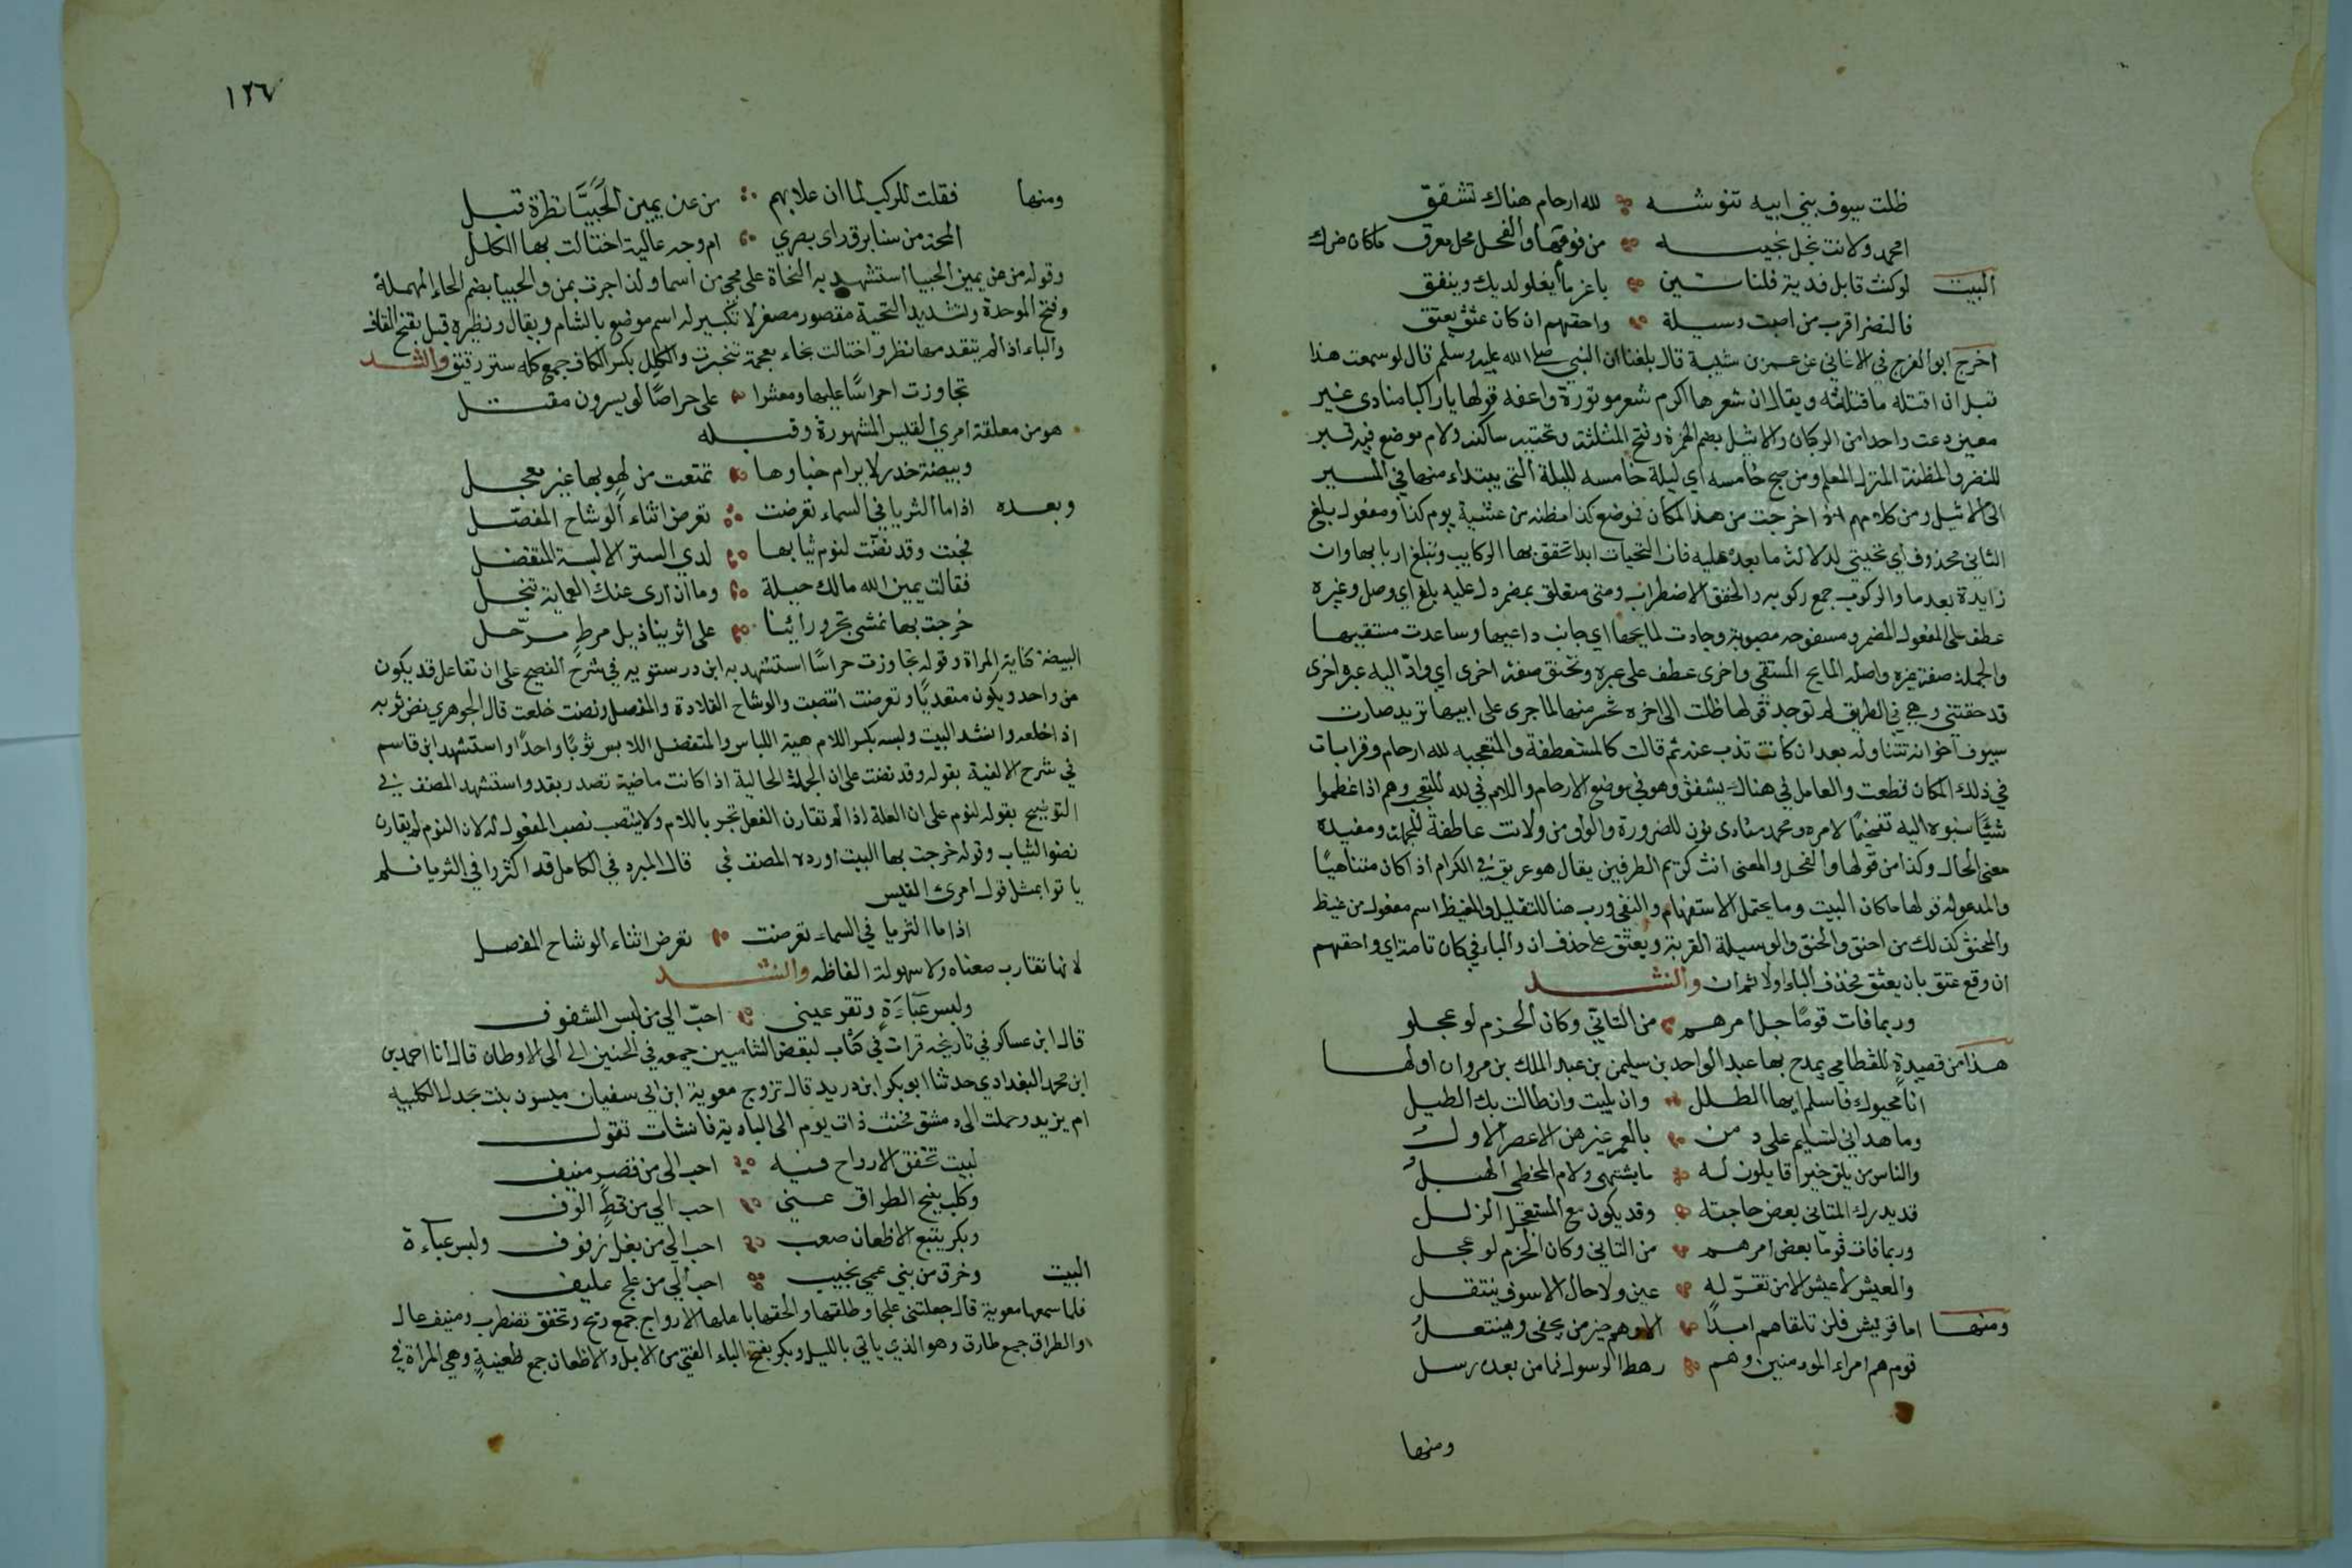 ظلت سيوف بني ابيه تنوشه لله ارحام هناك تشقق
امحمد ولانت نجل نجيبه من قومها والفحل فحل معرق ماكان ضرك
البيت لوكنت قابل فدية فلناتين باعز ما يغلو لديك وينفق
فالنضر اقرب من اصبت وسيلة واحقهم ان كان عتق يعتق
اخرج ابو الفرج في الاغاني عن عمر بن شيبة قال بلغنا ان النبي صلى الله عليه وسلم قال لو سمعت هذا
قبل ان اقتله ما قتلته ويقال ان شعرها اكرم شعر موتورة واعفه قولها يا راكبا منادى غير
معين دعت واحدا من الركبان والاثيل بضم الهمزة وفتح المثلثة وتحتية ساكنه ولام موضع فيه قبر
للنضر والمظنة المنزل المعلم ومن صبح خامسه اي ليلة خامسه لليلة التي يبتداء منها في المسير
الى الاثيل ومن كلامهم اذا خرجت من هذا المكان فموضع كذا مظنه من عشية يوم كذا ومفعول بلغ
الثاني محذوف اي تحيتي لدلالة ما بعده عليه فان التحيات ابدا تخفق بها الركايب وتبلغ اربابها وان
زايدة بعد ما والركوب جمع ركوبه والخفق الاضطراب ومني متعلق بمضمر دل عليه بلغ اي وصل وغيره
عطف على المفعول المضمر ومسفوحه مصبوبة وجادت لمايحها اي جانب داعيها وساعدت مستقيها
والجملة صفة عبره واصله المايح المستقي واخرى عطف على عبره وتخنق صفة اخرى اي واد اليه عبره اخرى
قد خنقتني وهي في الطريق لم توجد قولها ظلت الى اخره تحسر منها لما جرى على ابيها تريد صارت
سيوف اخوانه تتناوله بعد ان كانت تذب عنه ثم قالت كالمستعطفة والمتعجبه لله ارحام وقرابات
في ذلك المكان قطعت والعامل في هناك يشقق وهو في موضع الارحام واللام في لله للتعجب وهم اذا عظموا
شيئا نسبوه اليه تفخيما لامره ومحمد منادى نون للضرورة والواو من ولانت عاطفة للجملة ومفيده
معنى الحال وكذا من قولها والفحل والمعنى انت كريم الطرفين يقال هو عريق في الكرام اذا كان متناهيا
والمدعوله قولها ما كان البيت وما يحتمل الاستفهام والنفي ورب هنا للتقليل والمغيظ اسم مفعول من غيظ
والمحنق كذلك من احنق والحنق والوسيلة القربة ويعتق على حذف ان والباء في كان تامة اي واحقهم
ان وقع عتق بان يعتق فحذف الباء اولا ثم ان وانشد
وربما فات قوما جل امرهم من التاني وكان الحزم لو عجلو
هذا من قصيدة للقطامي يمدح بها عبد الواحد بن سليمن بن عبد الملك بن مروان اولها
انا محيوك فاسلم ايها الطلل وان بليت وان طالت بك الطيل
وما هداني لتسليم على دمن بالغمر غيرهن الاعصر الاول
والناس من يلق خيرا قايلون له ما يشتهي ولام المخطي الهبل
قد يدرك المتاني بعض حاجته وقد يكون مع المستعجل الزلل
وربما فات قوما بعض امرهم من التاني وكان الحزم لو عجل
والعيش لا عيش الا من تقر له عين ولا حال الا سوف ينتقل
ومنها اما قريش فلن تلقاهم ابدا الا وهم خير من يحفى وينتعل
قوم هم امراء المومنين وهم رهط الرسول فما من بعده رسل
ومنها
١٢٦٧
ومنها فقلت للركب لما ان علا بهم من عن يمين الحبيا نظرة قبل
المحة من سنا برق راى بصري ام وجه عالية اختالت بها الكلل
وقوله من عن يمين الحبيا استشهد به النحاة على مجي عن اسما ولذا جرت بمن والحبيا بضم الحاء المهملة
وفتح الموحدة وتشديد التحية مقصور مصغر لا تكبير له اسم موضع بالشام ويقال ونظيره قبل بفتح القاف
والباء اذا لم يتقدمها نظر واختالت بخاء معجمة تبخترت والكلل بكسر الكاف جمع كله ستر رقيق وانشد
تجاوزت احراسا عليها ومعشرا على حراصا لو يسرون مقتل
هو من معلقة امرئ القيس المشهورة وقبله
وبيضة خدر لا يرام خباوها تمتعت من لهو بها غير معجل
وبعده اذا ما الثريا في السماء تعرضت تعرض اثناء الوشاح المفصل
فجئت وقد نضت لنوم ثيابها لدي الستر الا لبسة المتفضل
فقالت يمين الله مالك حيلة وما ان ارى عنك العماية تنجل
خرجت بها نمشي تجر ورائنا على اثرينا ذيل مرط مرحل
البيضة كناية المراة وقوله تجاوزت حراسا استشهد به ابن درستويه في شرح الفصيح على ان تفاعل قد يكون
من واحد ويكون متعديا وتعرضت انتصبت والوشاح القلادة والمفصل ونضت خلعت قال الجوهري نض ثوبه
اذا خلعه وانشد البيت ولبسه بكسر اللام هيئة اللباس والمتفضل اللابس ثوبا واحدا واستشهد ابن قاسم
في شرح الالفية بقوله وقد نضت على ان الجملة الحالية اذا كانت ماضية تصدر بقد واستشهد المصنف في
التوضيح بقوله لنوم على ان العلة اذا لم تقارن الفعل تجر باللام ولا ينتصب نصب المفعول له لان النوم لم يقارن
نضو الثياب وقوله خرجت بها البيت اورده المصنف في قال المبرد في الكامل قد اكثروا في الثريا فلم
ياتوا بمثل قول امرئ القيس
اذا ما الثريا في السماء تعرضت تعرض اثناء الوشاح المفصل
لانها تقارب معناه ولا سهولة الفاظه وانشد
ولبس عباءة وتقر عيني احب الي من لبس الشفوف
قال ابن عساكر في تاريخه قرات في كتاب لبعض الشاميين جمعه في الحنين الى الى الاوطان قال انا احمد بن
ابن محمد البغدادي حدثنا ابو بكر ابن دريد قال تزوج معوية ابن ابي سفيان ميسون بنت بجدل الكلبيه
ام يزيد وحملت الى دمشق فحنت ذات يوم الى البادية فانشات تقول
لبيت تخفق الارواح فيه احب الى من قصر منيف
وكلب ينبح الطراق عني احب الي من قط الوف
وبكر يتبع الاظعان صعب احب الي من بغل زفوف ولبس عباءة
البيت وخرق من بني عمي نجيب احب الي من علج عليف
فلما سمعها معوية قال جعلتني علجا وطلقها والحقها باهلها الارواح جمع ريح وتخفق تضطرب ومنيف عال
والطراق جمع طارق وهو الذي ياتي بالليل وبكر بفتح الباء الفتى من الابل والاظعان جمع ظعينة وهي المراة في